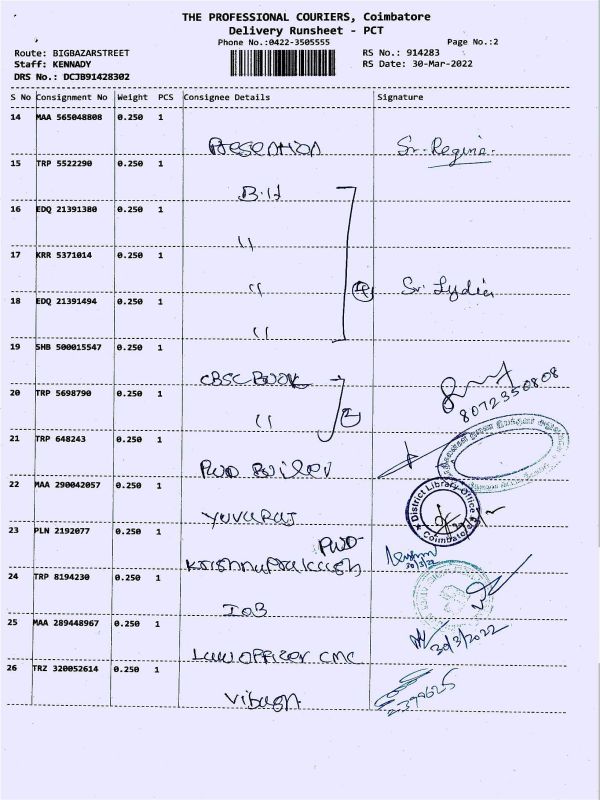 THE PROFESSIONAL COURIERS, Coimbatore
Delivery Runsheet - PCT
Phone No.:0422-3505555
Page No.:2
Route: BIGBAZARSTREET
RS No.: 914283
Staff: KENNADY
RS Date: 30-Mar-2022
DRS No.: DCJB91428302
S No Consignment No Weight PCS Consignee Details Signature
14 MAA 565048808 0.250 1
Presention Sr. Regina.
15 TRP 5522290 0.250 1
B.H
16 EDQ 21391380 0.250 1
"
17 KRR 5371014 0.250 1
" 4 Sr. Lydia
18 EDQ 21491494 0.250 1
"
19 SHB 500015547 0.250 1
CBSC Book
20 TRP 5698790 0.250 1
8072350808
" 2
21 TRP 648243 0.250 1
PWD
22 MAA 290042057 0.250 1
District Library Office
Coimbatore
Yuvaraj
23 PLN 2192077 0.250 1
PWD
Krishnaprakash
30/3/22
24 TRP 8194230 0.250 1
IOB
25 MAA 289448967 0.250 1
30/3/2022
Law officer CMC
26 TRZ 320052614 0.250 1
2399625